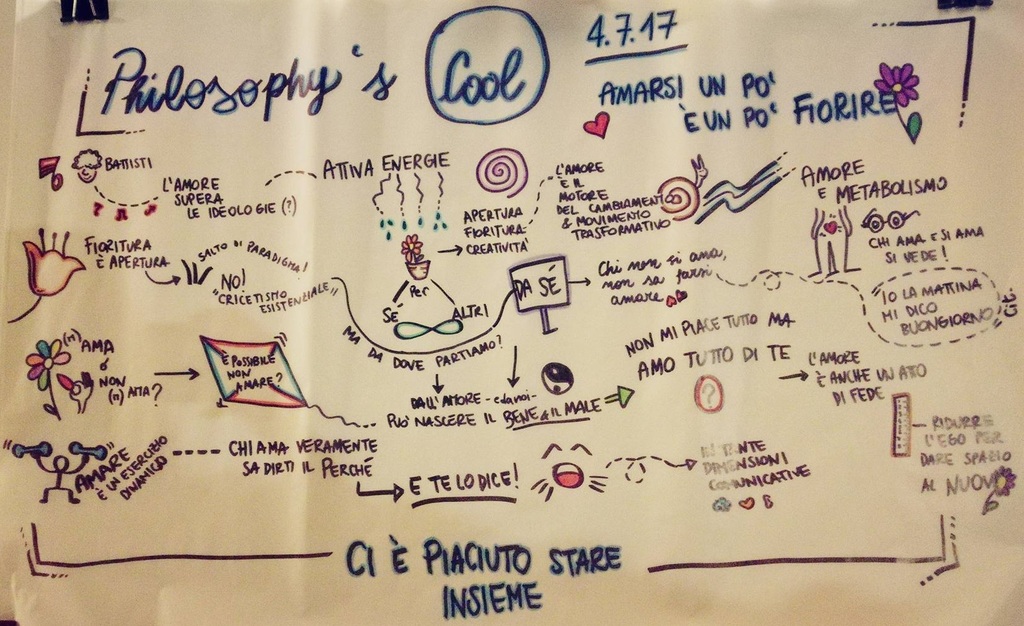 Philosophy's Cool
4.7.17
AMARSI UN PO'
È UN PO' FIORIRE
BATTISTI
L'AMORE
SUPERA
LE IDEOLOGIE (?)
ATTIVA ENERGIE
APERTURA
FIORITURA
CREATIVITA'
L'AMORE
È IL
MOTORE
DEL CAMBIAMENTO
& MOVIMENTO
TRASFORMATIVO
AMORE
E METABOLISMO
CHI AMA E SI AMA
SI VEDE!
"IO LA MATTINA
MI DICO
BUONGIORNO"
cit.
FIORITURA
È APERTURA
SALTO DI PARADIGMA!
NO!
"CRICETISMO
ESISTENZIALE"
Per
SÉ
ALTRI
MA DA DOVE PARTIAMO?
DA SÉ
Chi non si ama,
non sa farsi
amare
(M)AMA
o
NON
(M)AMA?
È POSSIBILE
NON
AMARE?
DALL'AMORE - e da noi -
PUÒ NASCERE IL BENE & IL MALE
NON MI PIACE TUTTO MA
AMO TUTTO DI TE
L'AMORE
È ANCHE UN ATTO
DI FEDE
RIDURRE
L'EGO PER
DARE SPAZIO
AL NUOVO
AMARE
È UN ESERCIZIO
DINAMICO
CHI AMA VERAMENTE
SA DIRTI IL PERCHÉ
E TE LO DICE!
IN TANTE
DIMENSIONI
COMUNICATIVE
CI È PIACIUTO STARE
INSIEME